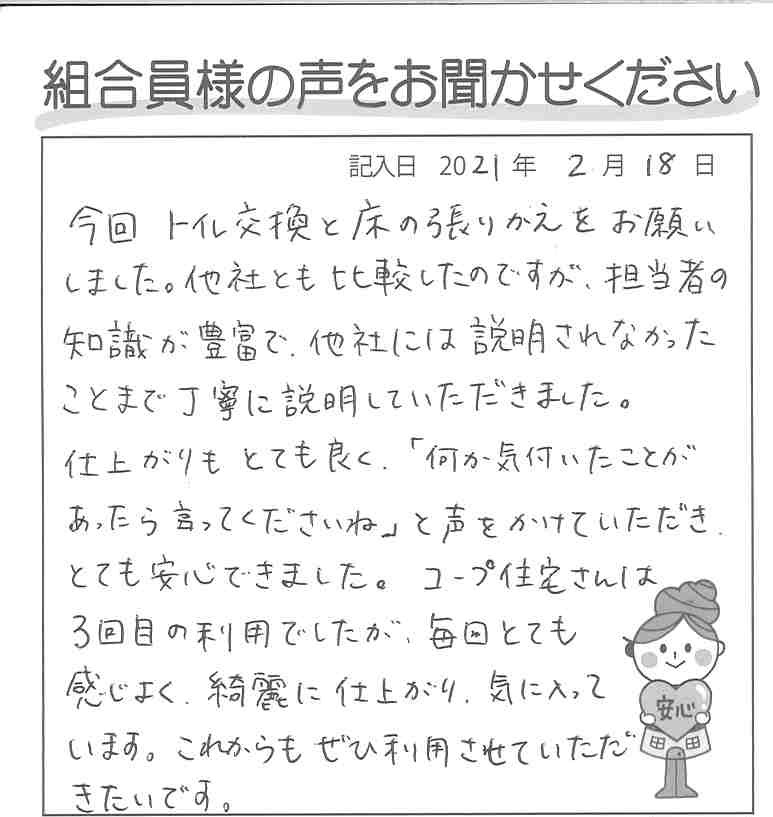 組合員様の声をお聞かせください
記入日 2021年 2月 18日
今回 トイレ交換と床の張りかえをお願い
しました。他社とも比較したのですが、担当者の
知識が豊富で、他社には説明されなかった
ことまで丁寧に説明していただきました。
仕上がりもとても良く、「何か気付いたことが
あったら言ってくださいね」と声をかけていただき、
とても安心できました。コープ住宅さんは
3回目の利用でしたが、毎回とても
感じよく、綺麗に仕上がり、気に入って
います。これからもぜひ利用させていただ
きたいです。
安心